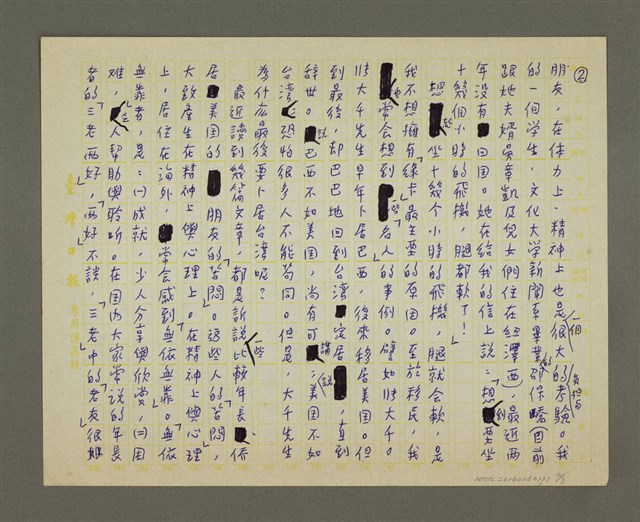 ②
朋友，在体力上、精神上也是一個很大的負担与考驗。我
的一個学生，文化大学新聞系畢業的邵保疇(目前
跟她夫婿吳章凱及兒女們住在紐澤西)，最近兩
年没有回国。她在給我的信上説：「想到要坐
十幾個小時的飛機，腿都軟了！」
想起坐十幾个小時的飛機，腿就会軟，是
我不想擁有「綠卡」最主要的原因。至於移民，我
也常会想到一些名人的事例。譬如張大千。
張大千先生早年卜居巴西，後來移居美国。但
到最後，却巴巴地回到台湾定居，直到
辞世。説巴西不如美国，尚有可講；説美国不如
台湾，恐怕很多人不能苟同。但是，大千先生
為什広最後要卜居台湾呢？
最近讀到幾篇文章，都是訴説一些比較年長、僑
居美国的朋友的苦悶。這些人的苦悶，
大致產生在精神上與心理上。在精神上與心理
上，居住在海外，常会感到無依無靠。「無依
無靠」者，是：㈠成就，少人分享與欣賞，㈡困
難，乏人幫助與聆听。在国内大家常説的年長
者的「三老兩好」，「兩好」不説，「三老」中的「老友」很難
臺灣日報
NMTL20160260191 2/3